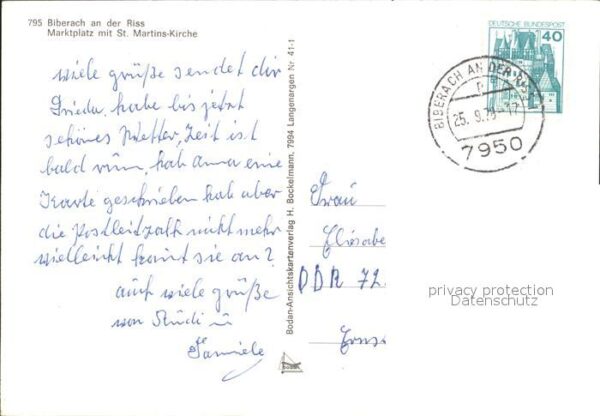 795 Biberach an der Riss
Marktplatz mit St. Martins-Kirche
viele grüße sendet dir
Frieda, habe bis jetzt
schönes Wetter, Zeit ist
bald rum, hab Anna eine
Karte geschrieben hab aber
die Postleitzahl nicht mehr
vielleicht komt sie an?
auch viele grüße
von Rudi u
Familie
Bodan-Ansichtskartenverlag H. Bockelmann, 7994 Langenargen Nr 41-1
DEUTSCHE BUNDESPOST
40
BIBERACH AN DER RISS
25. 9.
7950
Frau
Elisabe
DDR 72
privacy protection
Datenschutz